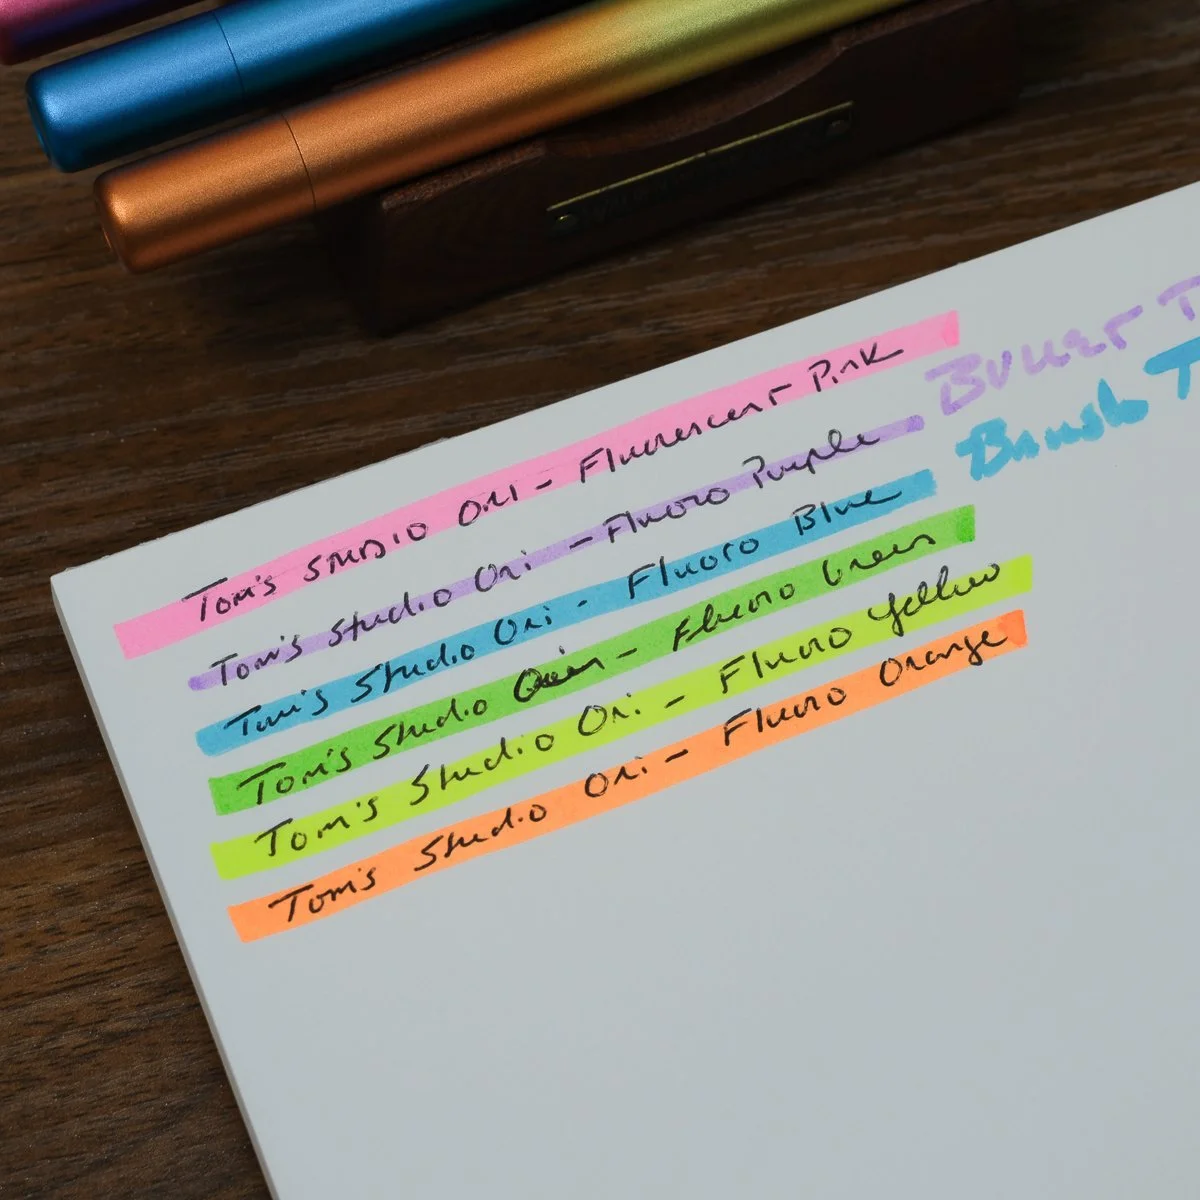 Tom's Studio Ori - Fluorescent Pink
Tom's Studio Ori - Fluoro Purple
Bullet T
Tom's Studio Ori - Fluoro Blue
Brush T
Tom's Studio Ori - Fluoro Green
Tom's Studio Ori - Fluoro Yellow
Tom's Studio Ori - Fluoro Orange